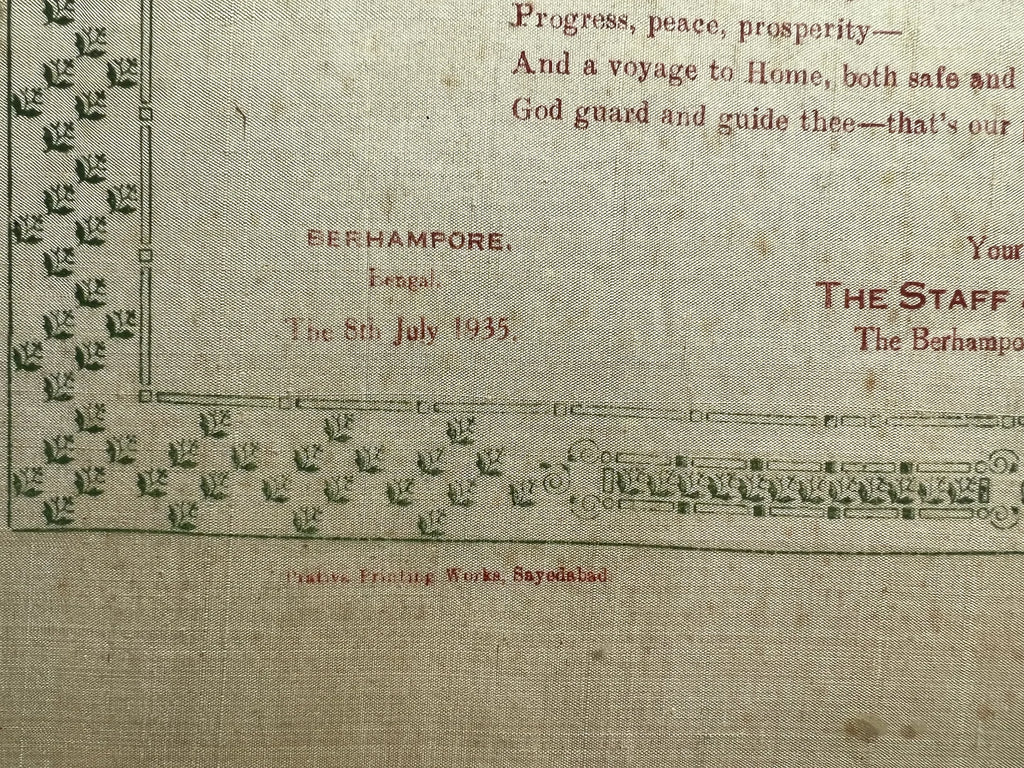 Progress, peace, prosperity—
And a voyage to Home, both safe and
God guard and guide thee—that's our
BERHAMPORE.
Bengal.
The 8th July 1935.
Your
THE STAFF
The Berhampo
Printing Works, Sayedabad.